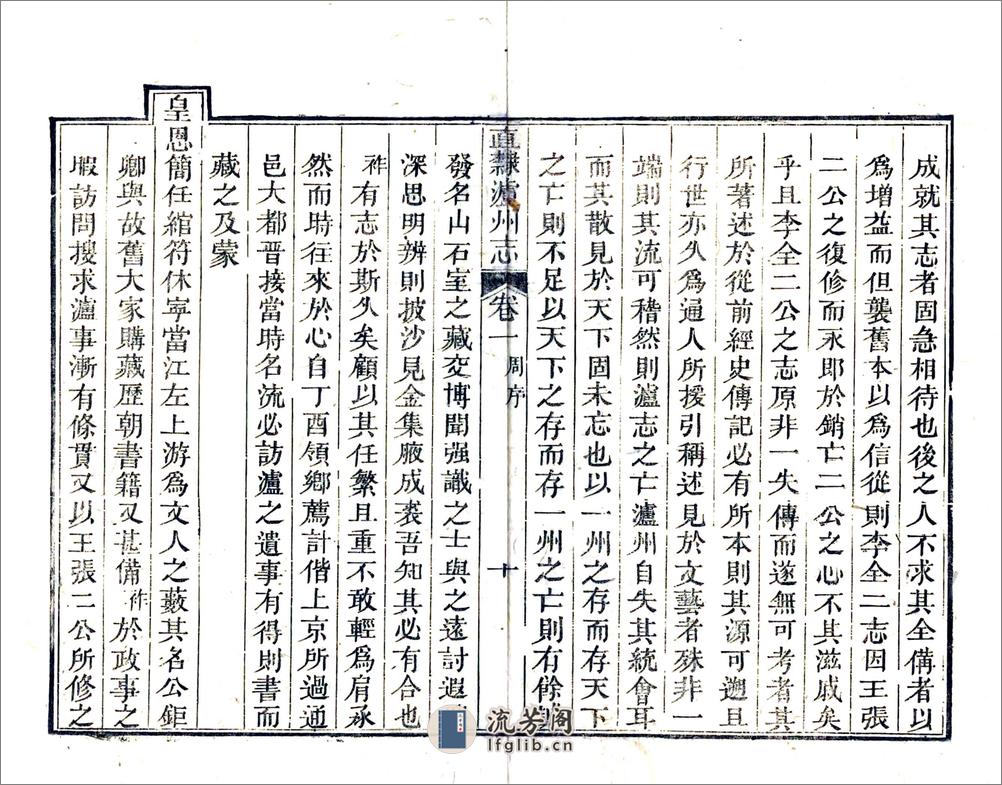 成就其志者固急相待也後之人不求其全備者以
爲增益而但襲舊本以爲信從則李全二志因王張
二公之復修而永即於銷亡二公之心不其滋戚矣
乎且李全二公之志原非一失傳而遂無可考者其
所著述於從前經史傳記必有所本則其源可遡且
行世亦久爲通人所援引稱述見於文藝者殊非一
端則其流可稽然則瀘志之亡瀘州自失其統會耳
而其散見於天下固未忘也以一州之存而存天下
之亡則不足以天下之存而存一州之亡則有餘
直隸瀘州志 卷一 周序 十
發名山石室之藏交博聞强識之士與之遠討遐
深思明辨則披沙見金集腋成裘吾知其必有合也
祚有志於斯久矣顧以其任繁且重不敢輕爲肩承
然而時往來於心自丁酉領鄉薦計偕上京所過通
邑大都晋接當時名流必訪瀘之遺事有得則書而
藏之及蒙
皇恩簡任綰符休寧當江左上游爲文人之藪其名公鉅
卿與故舊大家購藏歷朝書籍又甚備祚於政事之
暇訪問搜求瀘事漸有條貫又以王張二公所修之
流芳阁
lfglib.cn